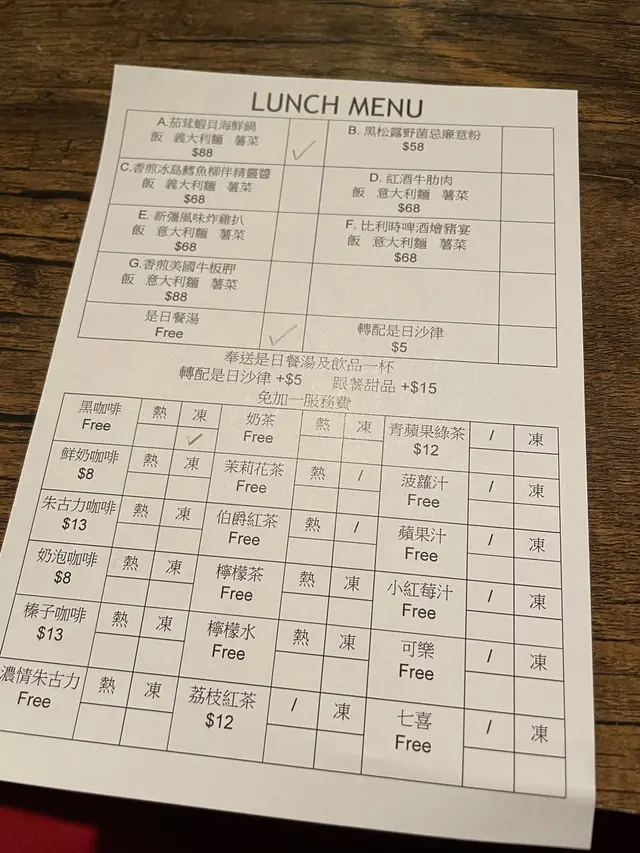 LUNCH MENU
A.茄茸蝦貝海鮮鍋
飯 義大利麵 薯菜
$88
✓
B. 黑松露野菌忌廉意粉
$58
C.香煎冰島鱈魚柳伴精靈醬
飯 義大利麵 薯菜
$68
D. 紅酒牛肋肉
飯 意大利麵 薯菜
$68
E. 新彊風味炸雞扒
飯 意大利麵 薯菜
$68
F. 比利時啤酒燴豬宴
飯 意大利麵 薯菜
$68
G.香煎美國牛板胛
飯 意大利麵 薯菜
$88
是日餐湯
Free
✓
轉配是日沙律
$5
奉送是日餐湯及飲品一杯
轉配是日沙律 +$5 跟餐甜品 +$15
免加一服務費
黑咖啡
Free
熱 凍
✓
奶茶
Free
熱 凍
青蘋果綠茶
$12
/ 凍
鮮奶咖啡
$8
熱 凍
茉莉花茶
Free
熱 /
菠蘿汁
Free
/ 凍
朱古力咖啡
$13
熱 凍
伯爵紅茶
Free
熱 /
蘋果汁
Free
/ 凍
奶泡咖啡
$8
熱 凍
檸檬茶
Free
熱 凍
小紅莓汁
Free
/ 凍
榛子咖啡
$13
熱 凍
檸檬水
Free
熱 凍
可樂
Free
/ 凍
濃情朱古力
Free
熱 凍
荔枝紅茶
$12
/ 凍
七喜
Free
/ 凍